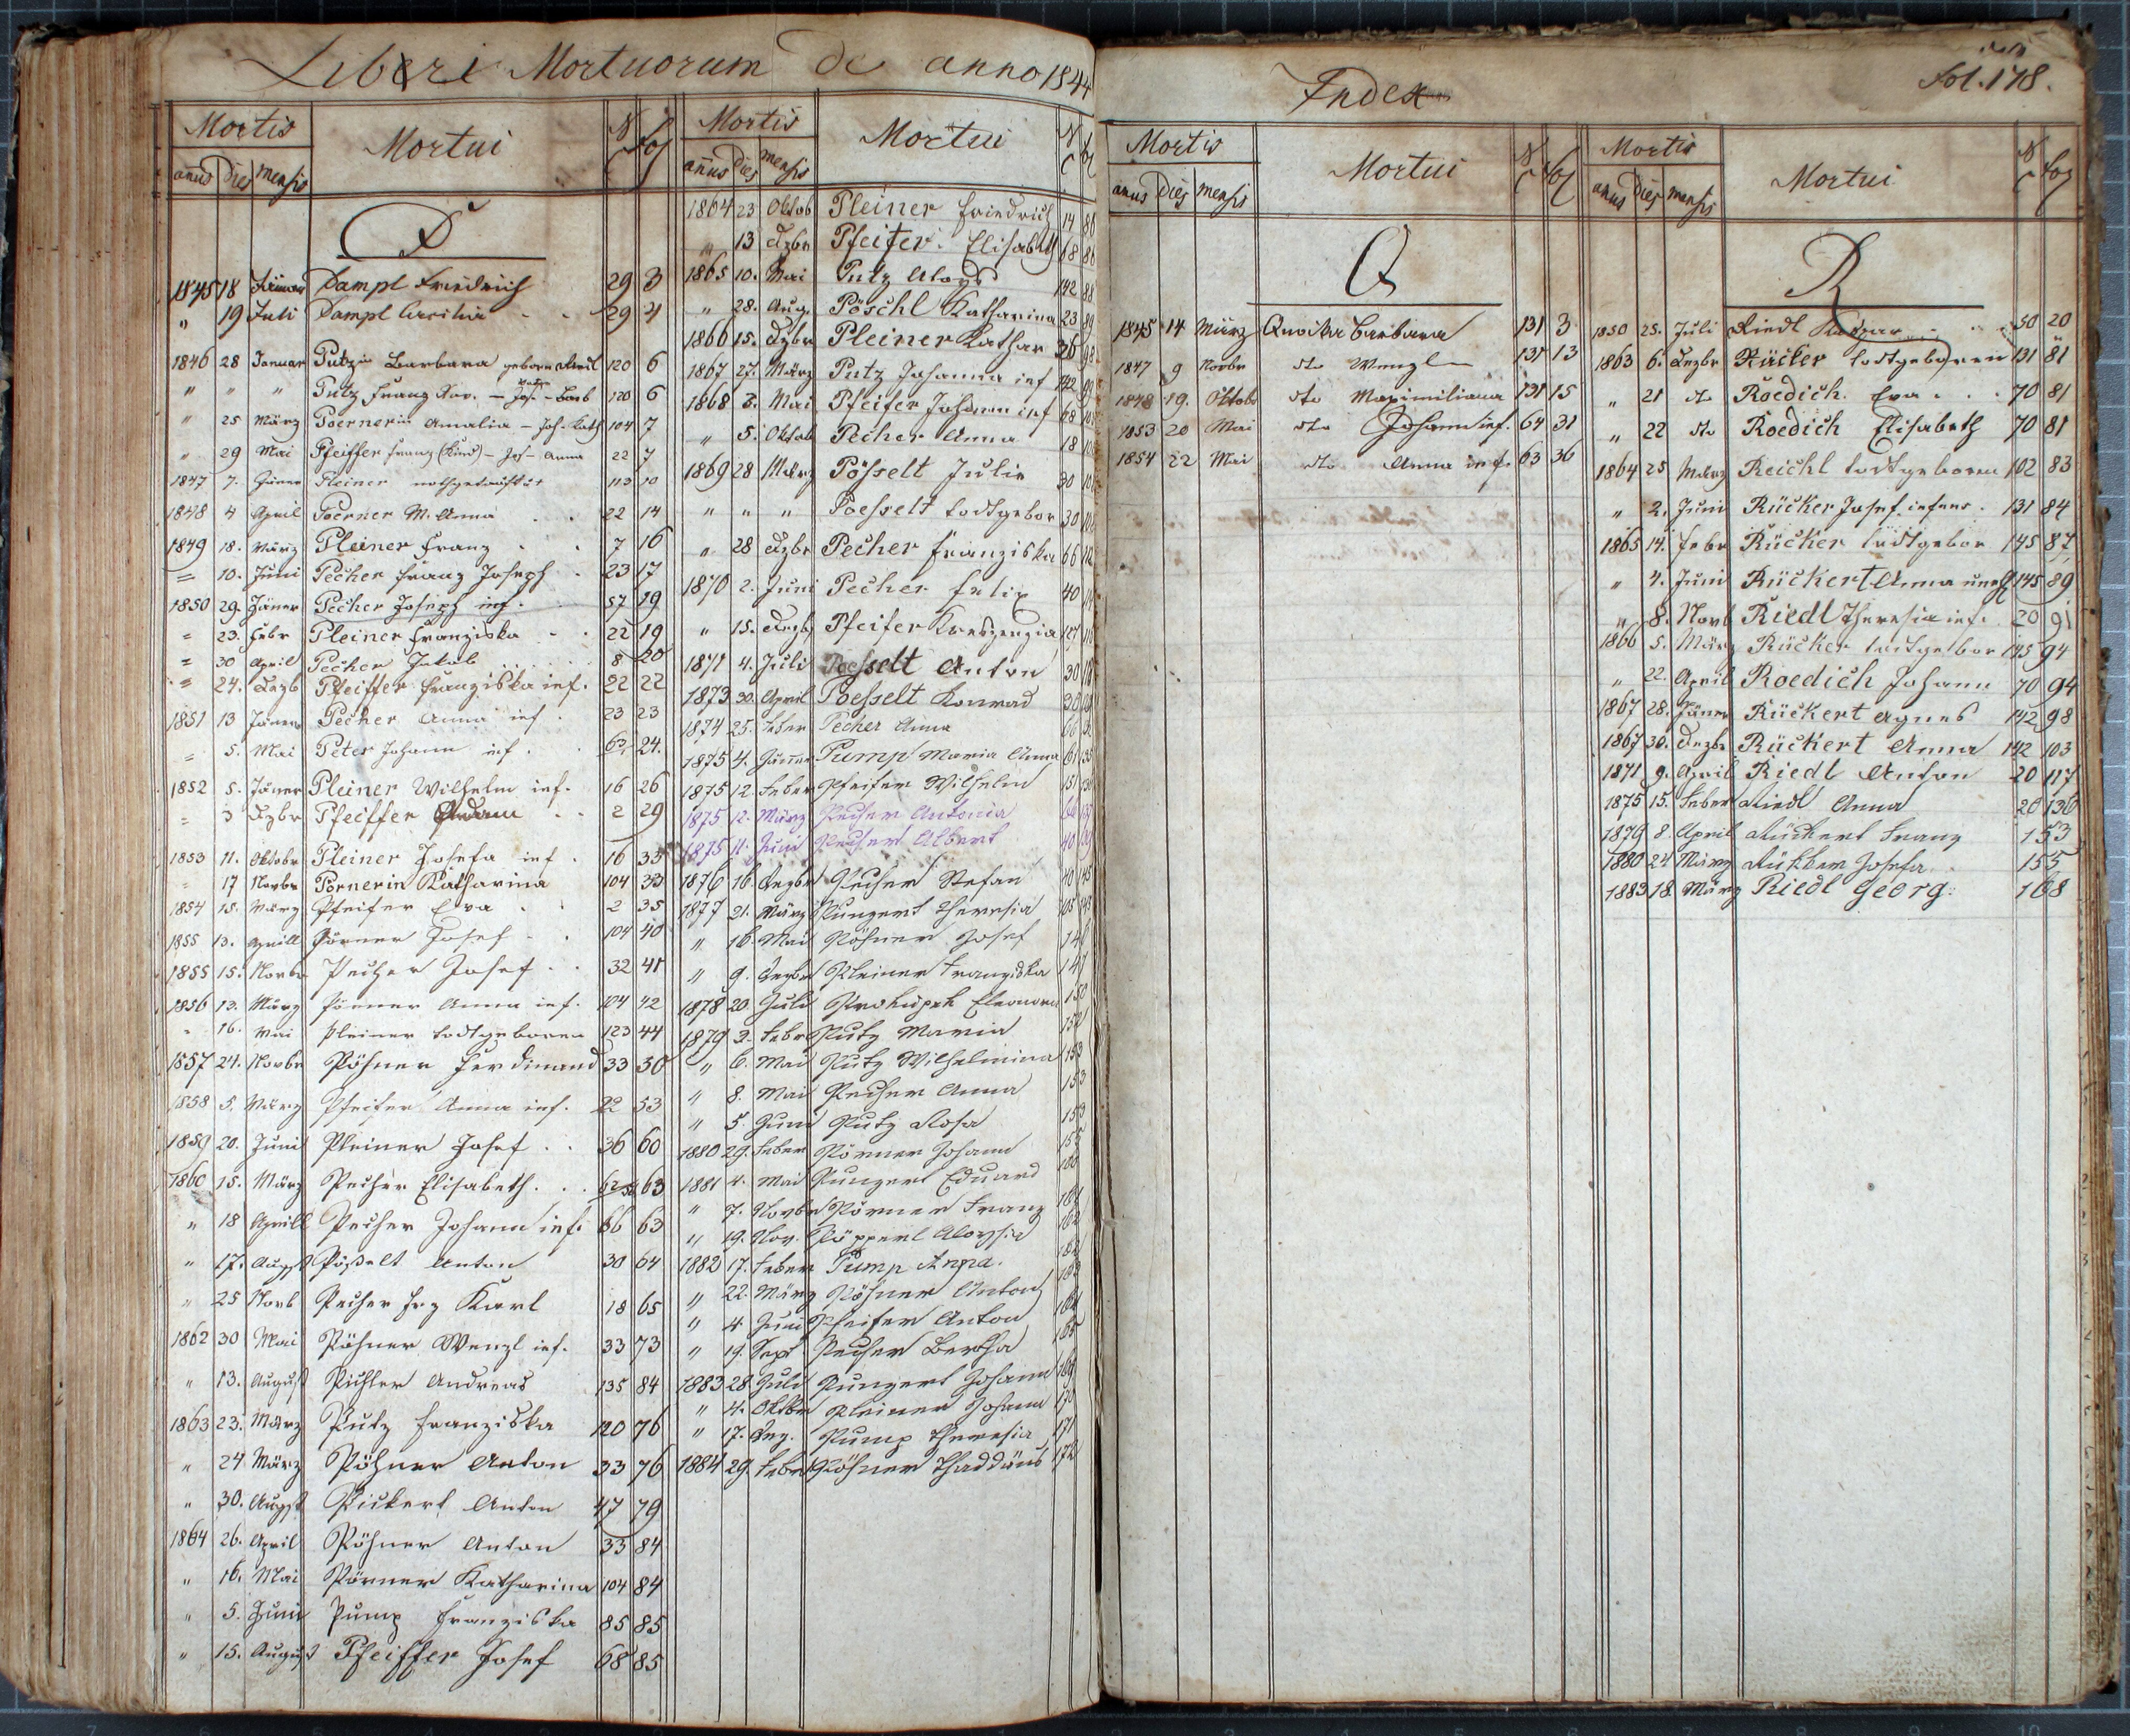 Liberi Mortuorum de anno 1844
Mortis Mortui N C fol
annus Dies mensis
P
1845 18 Jänner Pampl Friedrich 29 3
" 19 Juli Pampl Cäcilia 29 4
1846 28 Januar Putzin Barbara geborne Riedl 120 6
" " " Putz Franz Xav. - Jos - Barb 120 6
" 25 März Poernerin Amalia - Joh - Kath 104 7
" 29 Mai Pfeiffer Franz (Kind) - Jos - Anna 22 7
1847 7. Jäner Pleiner nothgetauft 113 10
1848 4 April Poerner M. Anna 22 14
1849 18. März Pleiner Franz 7 16
= 10. Juni Pecher Franz Joseph 23 17
1850 29. Jäner Pecher Joseph inf. 57 19
= 23. Febr Pleiner Franziska 22 19
= 30 April Pecher Jakob 8 20
= 24. Dezb Pfeiffer Franziska inf. 22 22
1851 13 Jäner Pecher Anna inf 23 23
= 5. Mai Peter Johann inf. 63 24.
1852 5. Jäner Pleiner Wilhelm inf. 16 26
= 3 Dzbr Pfeiffer Adam 2 29
1853 11. Oktobr Pleiner Josefa inf 16 33
" 17 Novbr Pörnerin Katharina 104 33
1854 15. März Pfeifer Eva 2 35
1855 13. Aprill Pörner Josef 104 40
1855 15. Novbr Pecher Josef 32 41
1856 13. März Pörner Anna inf. 104 42
" 16. Mai Pleiner todtgeboren 123 44
1857 24. Novbr Pöhner Ferdinand 33 50
1858 5. März Pfeifer Anna inf. 22 53
1859 20. Juni Pleiner Josef 36 60
1860 15. März Pecher Elisabeth 63
" 18 Aprill Pecher Johann inf. 66 63
" 17. Augst Pößelt Anton 30 64
" 25 Novb Pecher Frz Karl 18 65
1862 30 Mai Pöhner Wenzl inf. 33 73
" 13. August Pichler Andreas 135 84
1863 23. März Putz Franziska 120 76
" 24 März Pöhner Anton 33 76
" 30. Augst Pickert Anton 47 79
1864 26. April Pöhner Anton 33 84
" 16. Mai Pörner Katharina 104 84
" 5. Juni Pump Franziska 85 85
" 15. August Pfeiffer Josef 68 85
Mortis Mortui N C fol
annus Dies mensis
1864 23 Oktob Pleiner Friedrich 14 86
" 13 Dzbr Pfeifer Elisabeth 68 86
1865 10. Mai Putz Aloys 142 88
" 28. Aug. Pöschl Katharina 23 89
1866 15. Dzbr Pleiner Kathar 36
1867 27. März Putz Johanna inf 142 99
1868 3. Mai Pfeifer Johann inf 68
" 5. Oktob Pecher Anna 18
1869 28 März Pösselt Julie 30
" " " Poesselt todtgebor 30
" 28 Dzbr Pecher Franziska 66
1870 2. Juni Pecher Felix 40
" 15. Dezb Pfeifer Kreszenzia 127
1871 4. Juli Poesselt Anton 30
1873 30. April Poesselt Konrad 30
1874 25. Feber Pecher Anna 66
1875 4. Jänner Pump Maria Anna 61
1875 12. Feber Pfeifer Wilhelm 151
1875 12. März Pecher Antonia 66
1875 11. Juni Pecher Albert 40
1876 16. Dezbr Pecher Stefan 40
1877 21. März Pungert Theresia 105
" 16. Mai Pöhner Josef 146
" 9. Dezbr Pleiner Franziska 147
1878 20 Juli Prokupek Eleonora 150
1879 3. Febr Putz Maria 152
" 6. Mai Putz Wilhelmina 153
" 8. Mai Pecher Anna 153
" 5. Juni Putz Rosa 153
1880 29. Feber Pörner Johann 155
1881 4. Mai Pungert Eduard 160
" 7. Novbr Pörner Franz 161
" 19. Nov. Pöpperl Aloysia 162
1882 17. Feber Pump Anna.
" 22. März Pöhner Anton
" 4 Juni Pfeifer Anton
" 19. Sept Pecher Bertha
1883 28. Juli Pungert Johann 169
" 4. Oktbr Pleiner Johann 170
" 17. Dez. Pump Theresia 171
1884 29. Feber Pöhner Thaddäus 172
Index
Fol. 178.
Mortis Mortui N C fol
annus Dies mensis
Q
1845 14 März Quoika Barbara 131 3
1847 9 Novbr dto Wenzl 131 13
1848 19. Oktobr dto Maximiliana 131 15
1853 20 Mai dto Johann inf. 64 31
1854 22 Mai dto Anna inf. 63 36
Mortis Mortui N C fol
annus Dies mensis
R
1850 25. Juli Riedl 50 20
1863 6. Dezbr Rücker todtgeboren 131 81
" 21 dto Roedich Eva 70 81
" 22 dto Roedich Elisabeth 70 81
1864 25 März Reichl todtgeboren 102 83
" 2. Juni Rücker Josef infans 131 84
1865 14. Febr Rücker todtgebor 145 87
" 4. Juni Rückert Anna 145 89
" 8. Novb Riedl Theresia inf. 20 91
1866 5. März Rücker todtgebor 145 94
" 22. April Roedich Johann 70 94
1867 28. Jäner Rückert Agnes 142 98
1867 30. Dezbr Rückert Anna 142 103
1871 9. April Riedl Anton 20 117
1875 15. Feber Riedl Anna 20 136
1879 8. April Rückert Franz 153
1880 24 März Rückber Josefa 155
1883 18. März Riedl Georg. 168